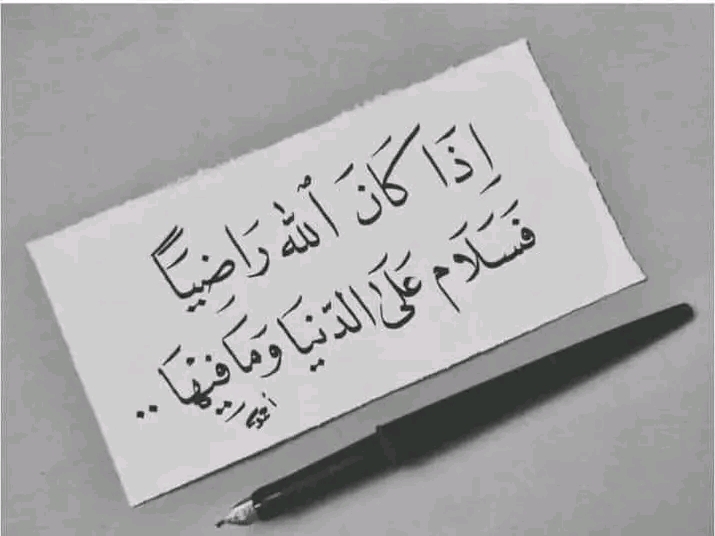 إِذَا كَانَ ٱللّٰه رَاضِيَاً
فَسَلَام عَلَىٰ الدّنيَا وَمَا فِيهَا ..